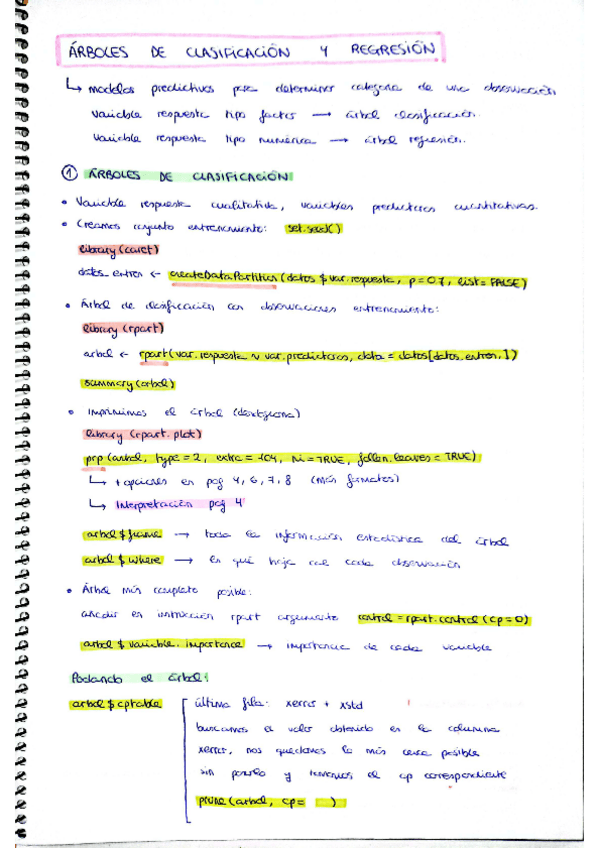 ÁRBOLES DE CLASIFICACIÓN Y REGRESIÓN
↳ modelos predictivos para determinar categoría de una observación
Variable respuesta tipo factor → árbol clasificación.
Variable respuesta tipo numérica → árbol regresión.
① ÁRBOLES DE CLASIFICACIÓN
• Variable respuesta cualitativa, variables predictoras cuantitativas.
• Creamos conjunto entrenamiento: set.seed()
library(caret)
datos_entren ← createDataPartition(datos$var.respuesta, p=0.7, list=FALSE)
• Árbol de clasificación con observaciones entrenamiento:
library(rpart)
arbol ← rpart(var.respuesta ~ var.predictoras, data = datos[datos.entren,])
summary(arbol)
• Imprimimos el árbol (dendograma)
library(rpart.plot)
prp(arbol, type=2, extra=104, ni=TRUE, fallen.leaves=TRUE)
↳ + opciones en pag 4, 6, 7, 8 (más formatos)
↳ Interpretación pag 4
arbol$frame → toda la información estadística del árbol
arbol$where → en qué hoja cae cada observación
• Árbol más completo posible:
añadir en instrucción rpart argumento control=rpart.control(cp=0)
arbol$variable.importance → importancia de cada variable
Podando el árbol:
arbol$cptable última fila: xerror + xstd
buscamos el valor obtenido en la columna
xerror, nos quedamos lo más cerca posible
sin pasarlo y tomamos el cp correspondiente
prune(arbol, cp= )